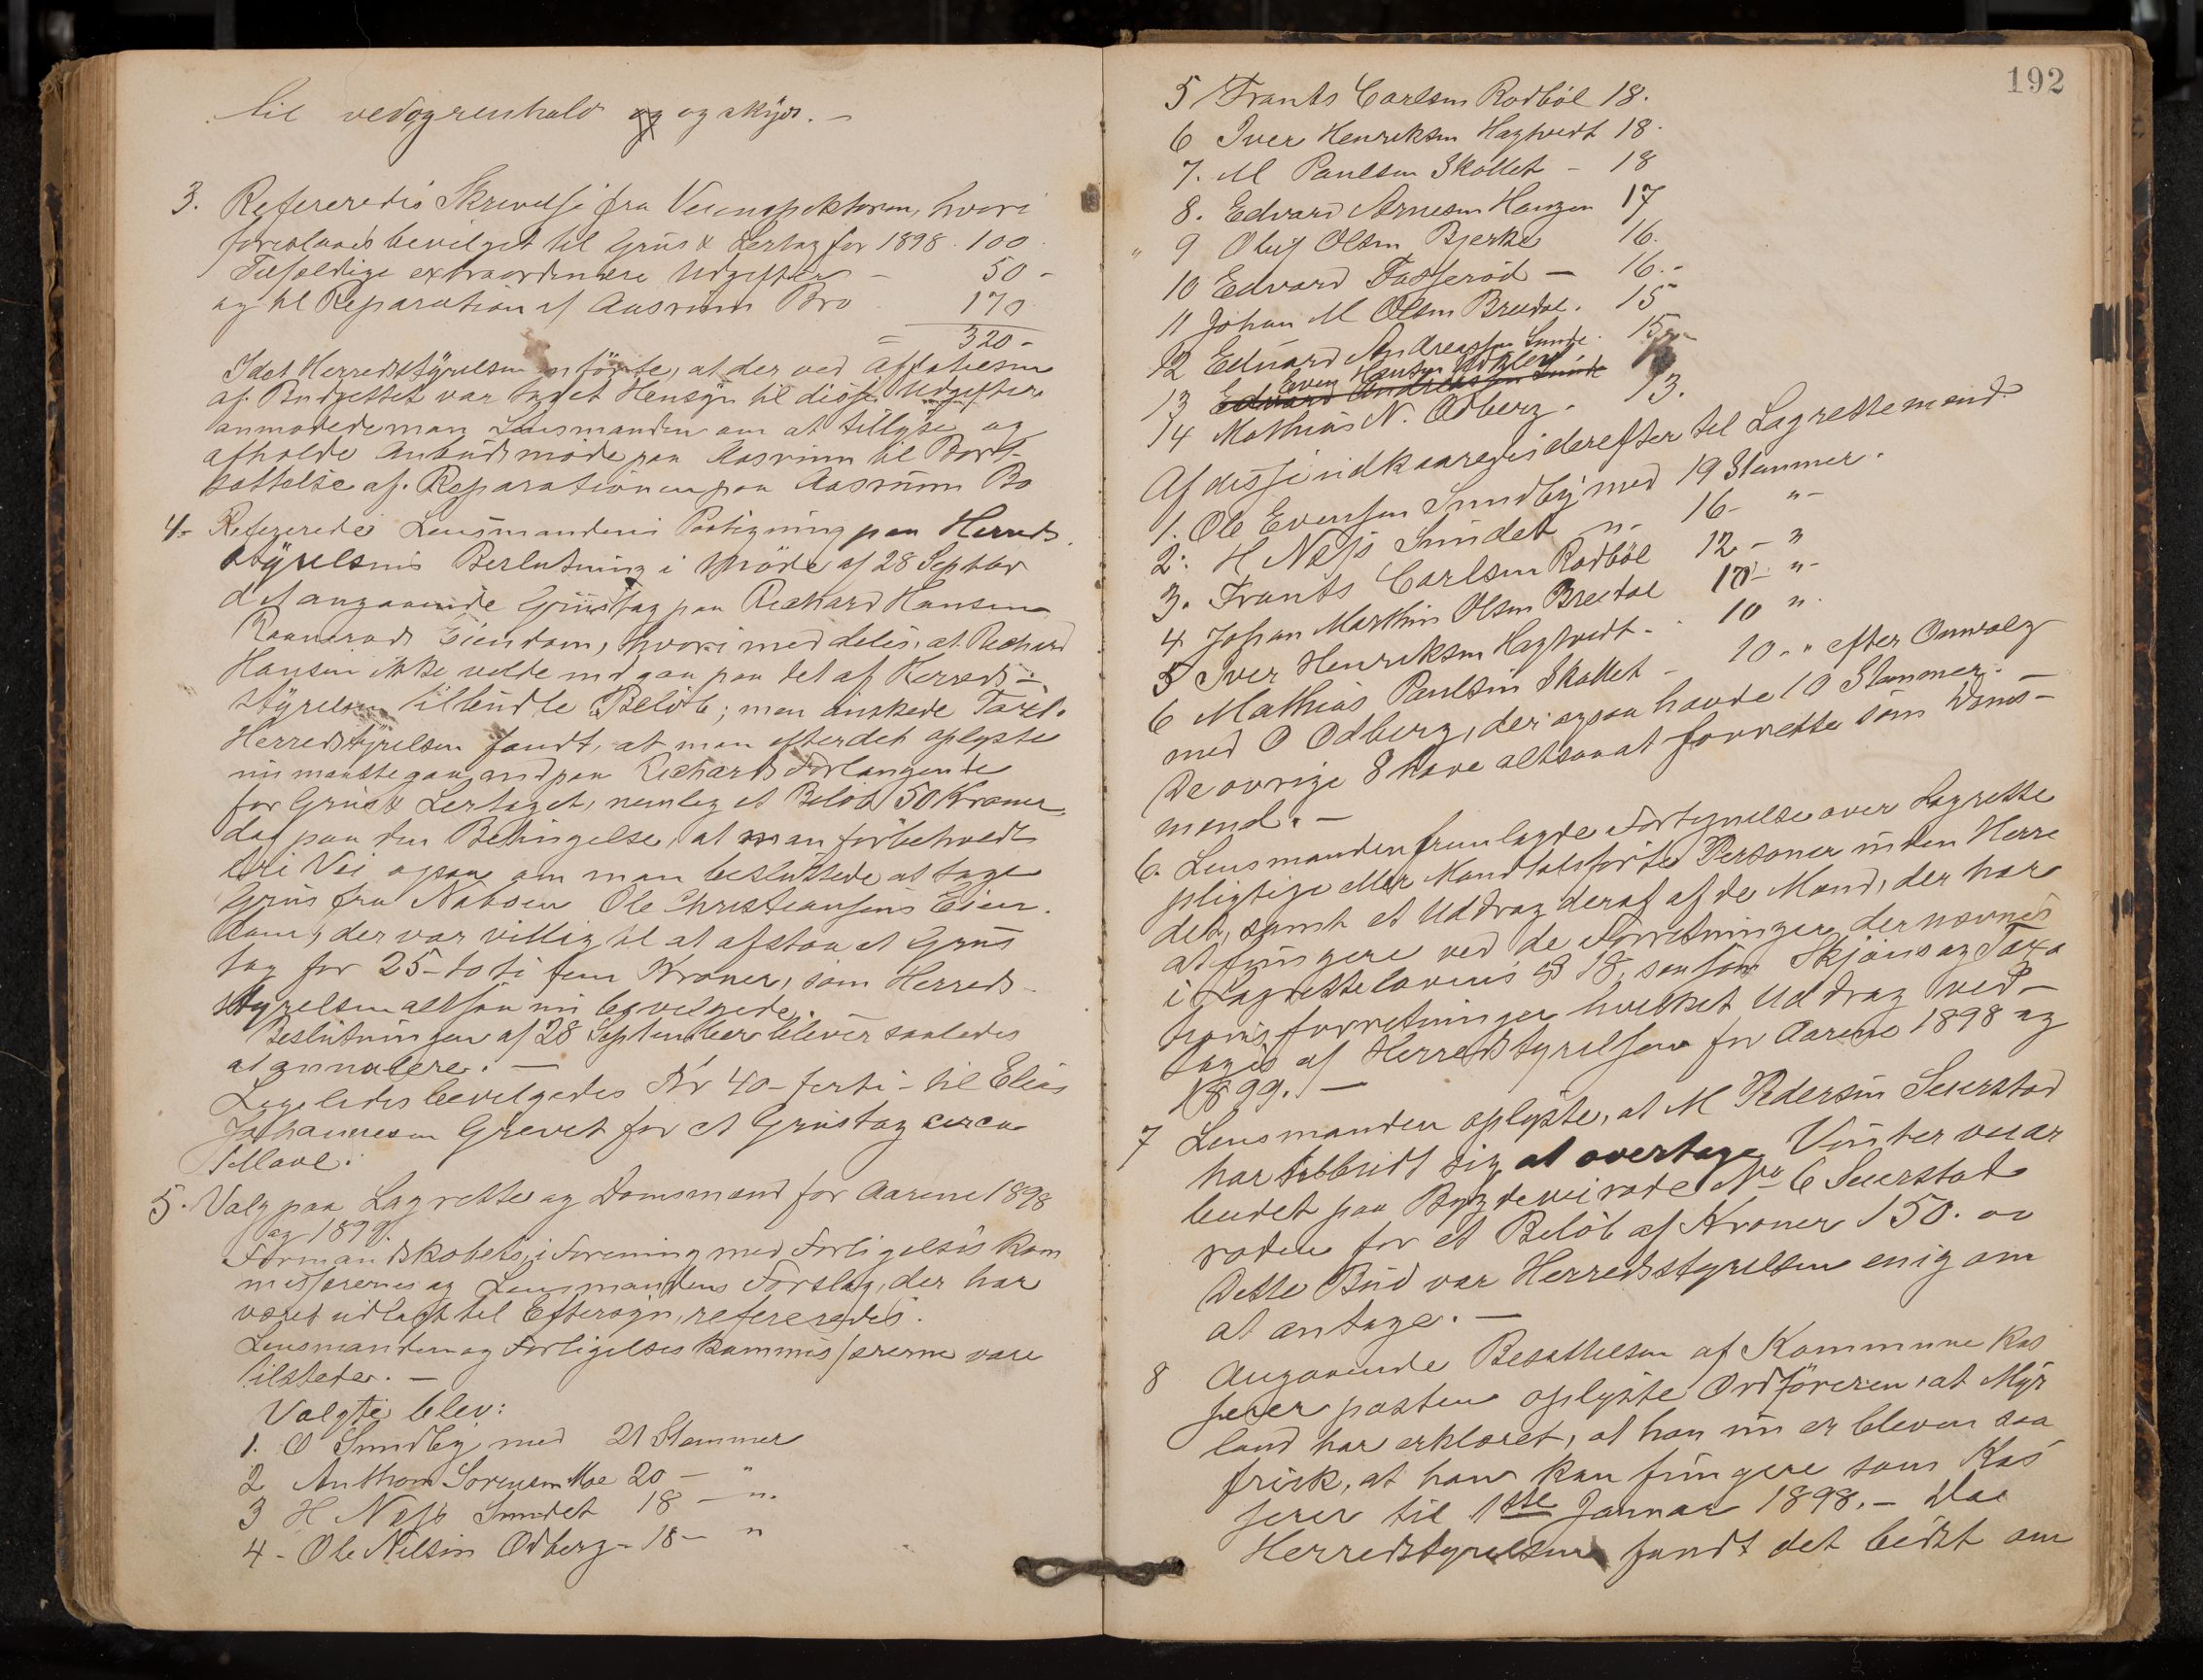 til vedogrenhold og og skyds. –
3. Refereredes Skrivelse fra Veiinspektoren, hvori
foreslaaes bevilget til Grus & Lertag for 1898 . 100
Tilfældige extraordinære Udgifter – 50 –
og til Reparation af Aasrum Bro 170
= 320 –
Idet Herredsstyrelsen anförte, at der ved Affatelsen
af Budgettet var taget Hensyn til disse Udgifter
anmodede man Lensmanden om at tillyse og
afholde Anbudsmöde paa Aasrum til Bort-
sættelse af Reparationen paa Aasrum Bro
4. Refereredes Lensmandens Paategning paa Herreds
styrelsens Beslutning i Möde af 28 Septbr
d A angaaende Grustag paa Richard Hansen
Raaneröds Eiendom, hvori meddeles, at Richard
Hansen ikke vilde indgaa paa det af Herreds-
styrelsen tilbudte Belöb; men önskede Taxt.
Herredsstyrelsen fandt, at man efter det oplyste
nu maatte gaa ind paa Richards Forlangende
for Grus & Lertaget, nemlig et Belöb 50 Kroner,
dog paa den Betingelse, at man forbeholdt
fri Vei ogsaa om man besluttede at tage
Grus fra Naboen Ole Christiansens Eien-
dom, der var villig til at afstaa et Grus
tag for 25 – to ti fem Kroner, som Herreds-
styrelsen altsaa nu bevilgede.
Beslutningen af 28 September bliver saaledes
at annulere. –
Ligeledes bevilgedes Kr 40 – firti – til Elias
Johannesen Grevet for et Grustag circa
1 Maal.
5. Valg paa Lagrette og Domsmænd for Aarene 1898
og 1899.
Formandskabets, i Forening med Forligelses kom
missærernes og Lensmandens Forslag, der har
været udlagt til Eftersyn, refereredes.
Lensmanden og Forligelseskommissærerne vare
tilstede. –
Valgte blev:
1. O Sundby med 21 Stemmer
2 Anthon Sörensen Moe 20 – "
3 H Næss Sundet 18 – "
4 – Ole Nilsen Odberg – 18 – "
192
5 Frants Carlsen Rodböl 18.
6 Iver Henriksen Hagtvedt 18.
7. M Paulsen Skallet – 18
8. Edvard Arnesen Haugen 17
" 9 Oluf Olsen Bjerke 16.
10 Edvard Fosseröd – 16. –
11 Johan M Olsen Bredal. 15
12 Edvard Andreassen Sunde. 15 –
Even Hansen
13 Edvard Andreassen Sunde
14 Mathias N. Odberg. 13.
Af disse udkaaredes derefter til Lagrettemænd.
1. Ole Evensen Sundby med 19 Stemmer.
2. H Næss Sundet " 16 – " –
3. Frants Carlsen Rodböl 12 – "
4 Johan Marthin Olsen Bredal – " –
5 Iver Henriksen Hagtvedt. – 10 "
6 Mathias Paulsen Skallet – 10. " efter Omvalg
med O Odberg, der ogsaa havde 10 Stemmer. –
De övrige 8 have altsaa at forrette som Doms-
mænd. –
6. Lensmanden fremlagde Fortegnelse over Lagrette
pligtige eller Mandtalsförte Personer inden Herre
det, samt et Uddrag deraf af de Mænd, der har
at fungere ved de Forretninger, der nævnes
i Lagrettelovens § 18, saasom Skjöns og Taxa
tionsforretninger hvilket Uddrag ved-
tages af Herredsstyrelsen for Aarene 1898 og
1899. –
7 Lensmanden oplyste, at M Pedersen Seierstad
har tilbudt sig at overtage Vinterveiar
beidet paa Bygdeveirode No 6 Seierstad
roden for et Belöb af Kroner 150. oo
Dette Bud var Herredsstyrelsen enig om
at antage. –
8 Angaaende Besættelsen af Kommune kas
serer posten oplyste Ordföreren, at Myr
land har erklæret, at han nu er bleven saa
frisk, at han kan fungere som Kas
serer til 1ste Januar 1898. – Da
Herredsstyrelsen fandt det bedst om